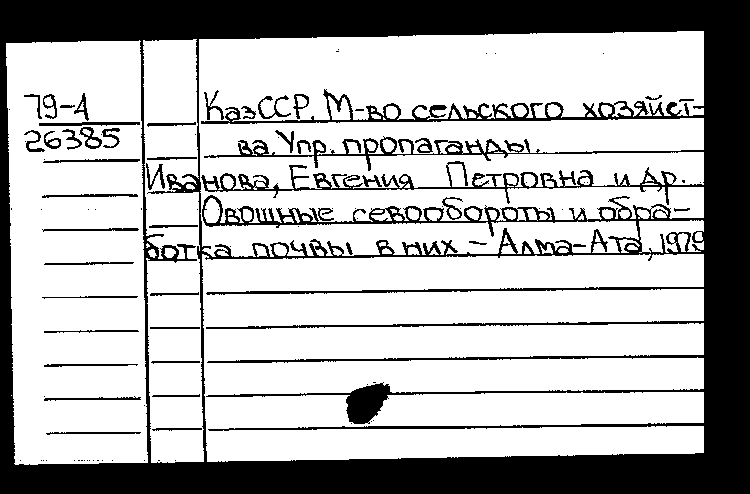 79-4
26385
КазССР. М-во сельского хозяйст-
ва. Упр. пропаганды.
Иванова, Евгения Петровна и др.
Овощные севообороты и обра-
ботка почвы в них. - Алма-Ата, 1979